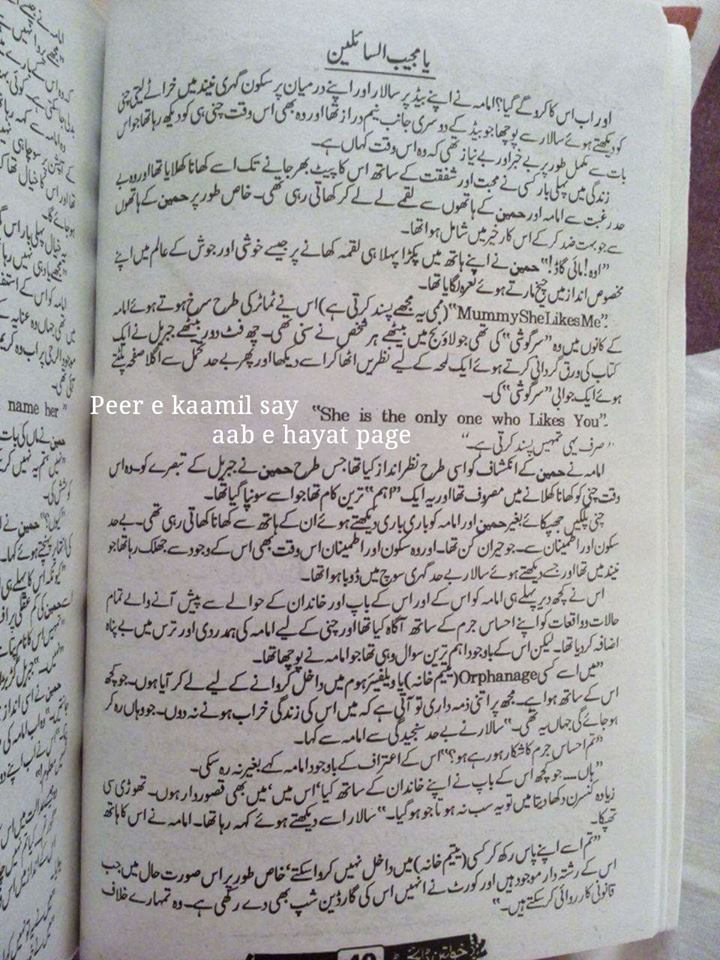 یا مجیب السائلین
اور اب اس کا کرو گے کیا؟ امامہ نے اپنے بیڈ پر سالار اور اپنے درمیان پر سکون گہری نیند میں خراٹے لیتی چنی
کو دیکھتے ہوئے سالار سے پوچھا جو بیڈ کے دوسری جانب نیم دراز تھا اور وہ بھی اس وقت چنی ہی کو دیکھ رہا تھا جو اس
بات سے مکمل طور پر بے خبر اور بے نیاز تھی کہ وہ اس وقت کہاں ہے۔
زندگی میں پہلی بار کسی نے محبت اور شفقت کے ساتھ اس کا پیٹ بھر جانے تک اسے کھانا کھلایا تھا اور وہ بے
حد رغبت سے امامہ اور حمین کے ہاتھوں سے لقمے لے لے کر کھاتی رہی تھی۔ خاص طور پر حمین کے ہاتھوں
سے جو بہت ضد کر کے اس کار خیر میں شامل ہوا تھا۔
"اوہ! مائی گاڈ!" حمین نے اپنے ہاتھ میں پکڑا پہلا ہی لقمہ کھانے پر جیسے خوشی اور جوش کے عالم میں اپنے
مخصوص انداز میں چیخ مارتے ہوئے نعرہ لگایا تھا۔
"MummySheLikesMe" (ممی یہ مجھے پسند کرتی ہے) اس نے ٹماٹر کی طرح سرخ ہوتے ہوئے امامہ
کے کانوں میں وہ "سرگوشی" کی تھی جو لاؤنج میں بیٹھے ہر شخص نے سنی تھی۔ چھ فٹ دور بیٹھے جبریل نے ایک
کتاب کی ورق گردانی کرتے ہوئے ایک لمحہ کے لیے نظریں اٹھا کر اسے دیکھا اور پھر بے حد تحمل سے اگلا صفحہ پلٹتے
ہوئے ایک جوابی "سرگوشی" کی۔
"She is the only one who Likes You"۔
"صرف یہی تمہیں پسند کرتی ہے۔"
امامہ نے حمین کے انکشاف کو اسی طرح نظر انداز کیا تھا جس طرح حمین نے جبریل کے تبصرے کو۔ وہ اس
وقت چنی کو کھانا کھلانے میں مصروف تھا اور یہ ایک "اہم" ترین کام تھا جو اسے سونپا گیا تھا۔
چنی پلکیں جھپکائے بغیر حمین اور امامہ کو باری باری دیکھتے ہوئے ان کے ہاتھ سے کھانا کھاتی رہی تھی۔ بے حد
سکون اور اطمینان سے۔ جو حیران کن تھا۔ اور وہ سکون اور اطمینان اس وقت بھی اس کے وجود سے جھلک رہا تھا جو
نیند میں تھا اور جسے دیکھتے ہوئے سالار بے حد گہری سوچ میں ڈوبا ہوا تھا۔
اس نے کچھ دیر پہلے ہی امامہ کو اس کے اور اس کے باپ اور خاندان کے حوالے سے پیش آنے والے تمام
حالات و واقعات کو اپنے احساس جرم کے ساتھ آگاہ کیا تھا اور چنی کے لیے امامہ کی ہمدردی اور ترس میں بے پناہ
اضافہ کر دیا تھا۔ لیکن اس کے باوجود اہم ترین سوال وہی تھا جو امامہ نے پوچھا تھا۔
"میں اسے کسی Orphanage (یتیم خانہ) یا ویلفیئر ہوم میں داخل کروانے کے لیے لے کر آیا ہوں۔ جو کچھ
اس کے ساتھ ہوا ہے۔ مجھ پر اتنی ذمہ داری تو آتی ہے کہ میں اس کی زندگی خراب ہونے نہ دوں۔ جو وہاں رہ کر
ہو جائے گی جہاں یہ تھی۔" سالار نے بے حد سنجیدگی سے امامہ سے کہا۔
"تم احساس جرم کا شکار ہو رہے ہو؟" اس کے اعتراف کے باوجود امامہ کہے بغیر نہ رہ سکی۔
"ہاں۔۔۔ جو کچھ اس کے باپ نے اپنے خاندان کے ساتھ کیا' اس میں' میں بھی قصور دار ہوں۔ تھوڑی سی
زیادہ کنسرن دکھا دیتا میں تو یہ سب نہ ہوتا جو ہو گیا۔" سالار اسے دیکھتے ہوئے کہہ رہا تھا۔ امامہ نے اس کا ہاتھ
تھپکا۔
"تم اسے اپنے پاس رکھ کر کسی (یتیم خانہ) میں داخل نہیں کروا سکتے' خاص طور پر اس صورت حال میں جب
اس کے رشتہ دار موجود ہیں اور کورٹ نے انہیں اس کی گارڈین شپ بھی دے رکھی ہے۔ وہ تمہارے خلاف
قانونی کارروائی کر سکتے ہیں۔"
Peer e kaamil say
aab e hayat page
name her"
خواتین ڈائجسٹ